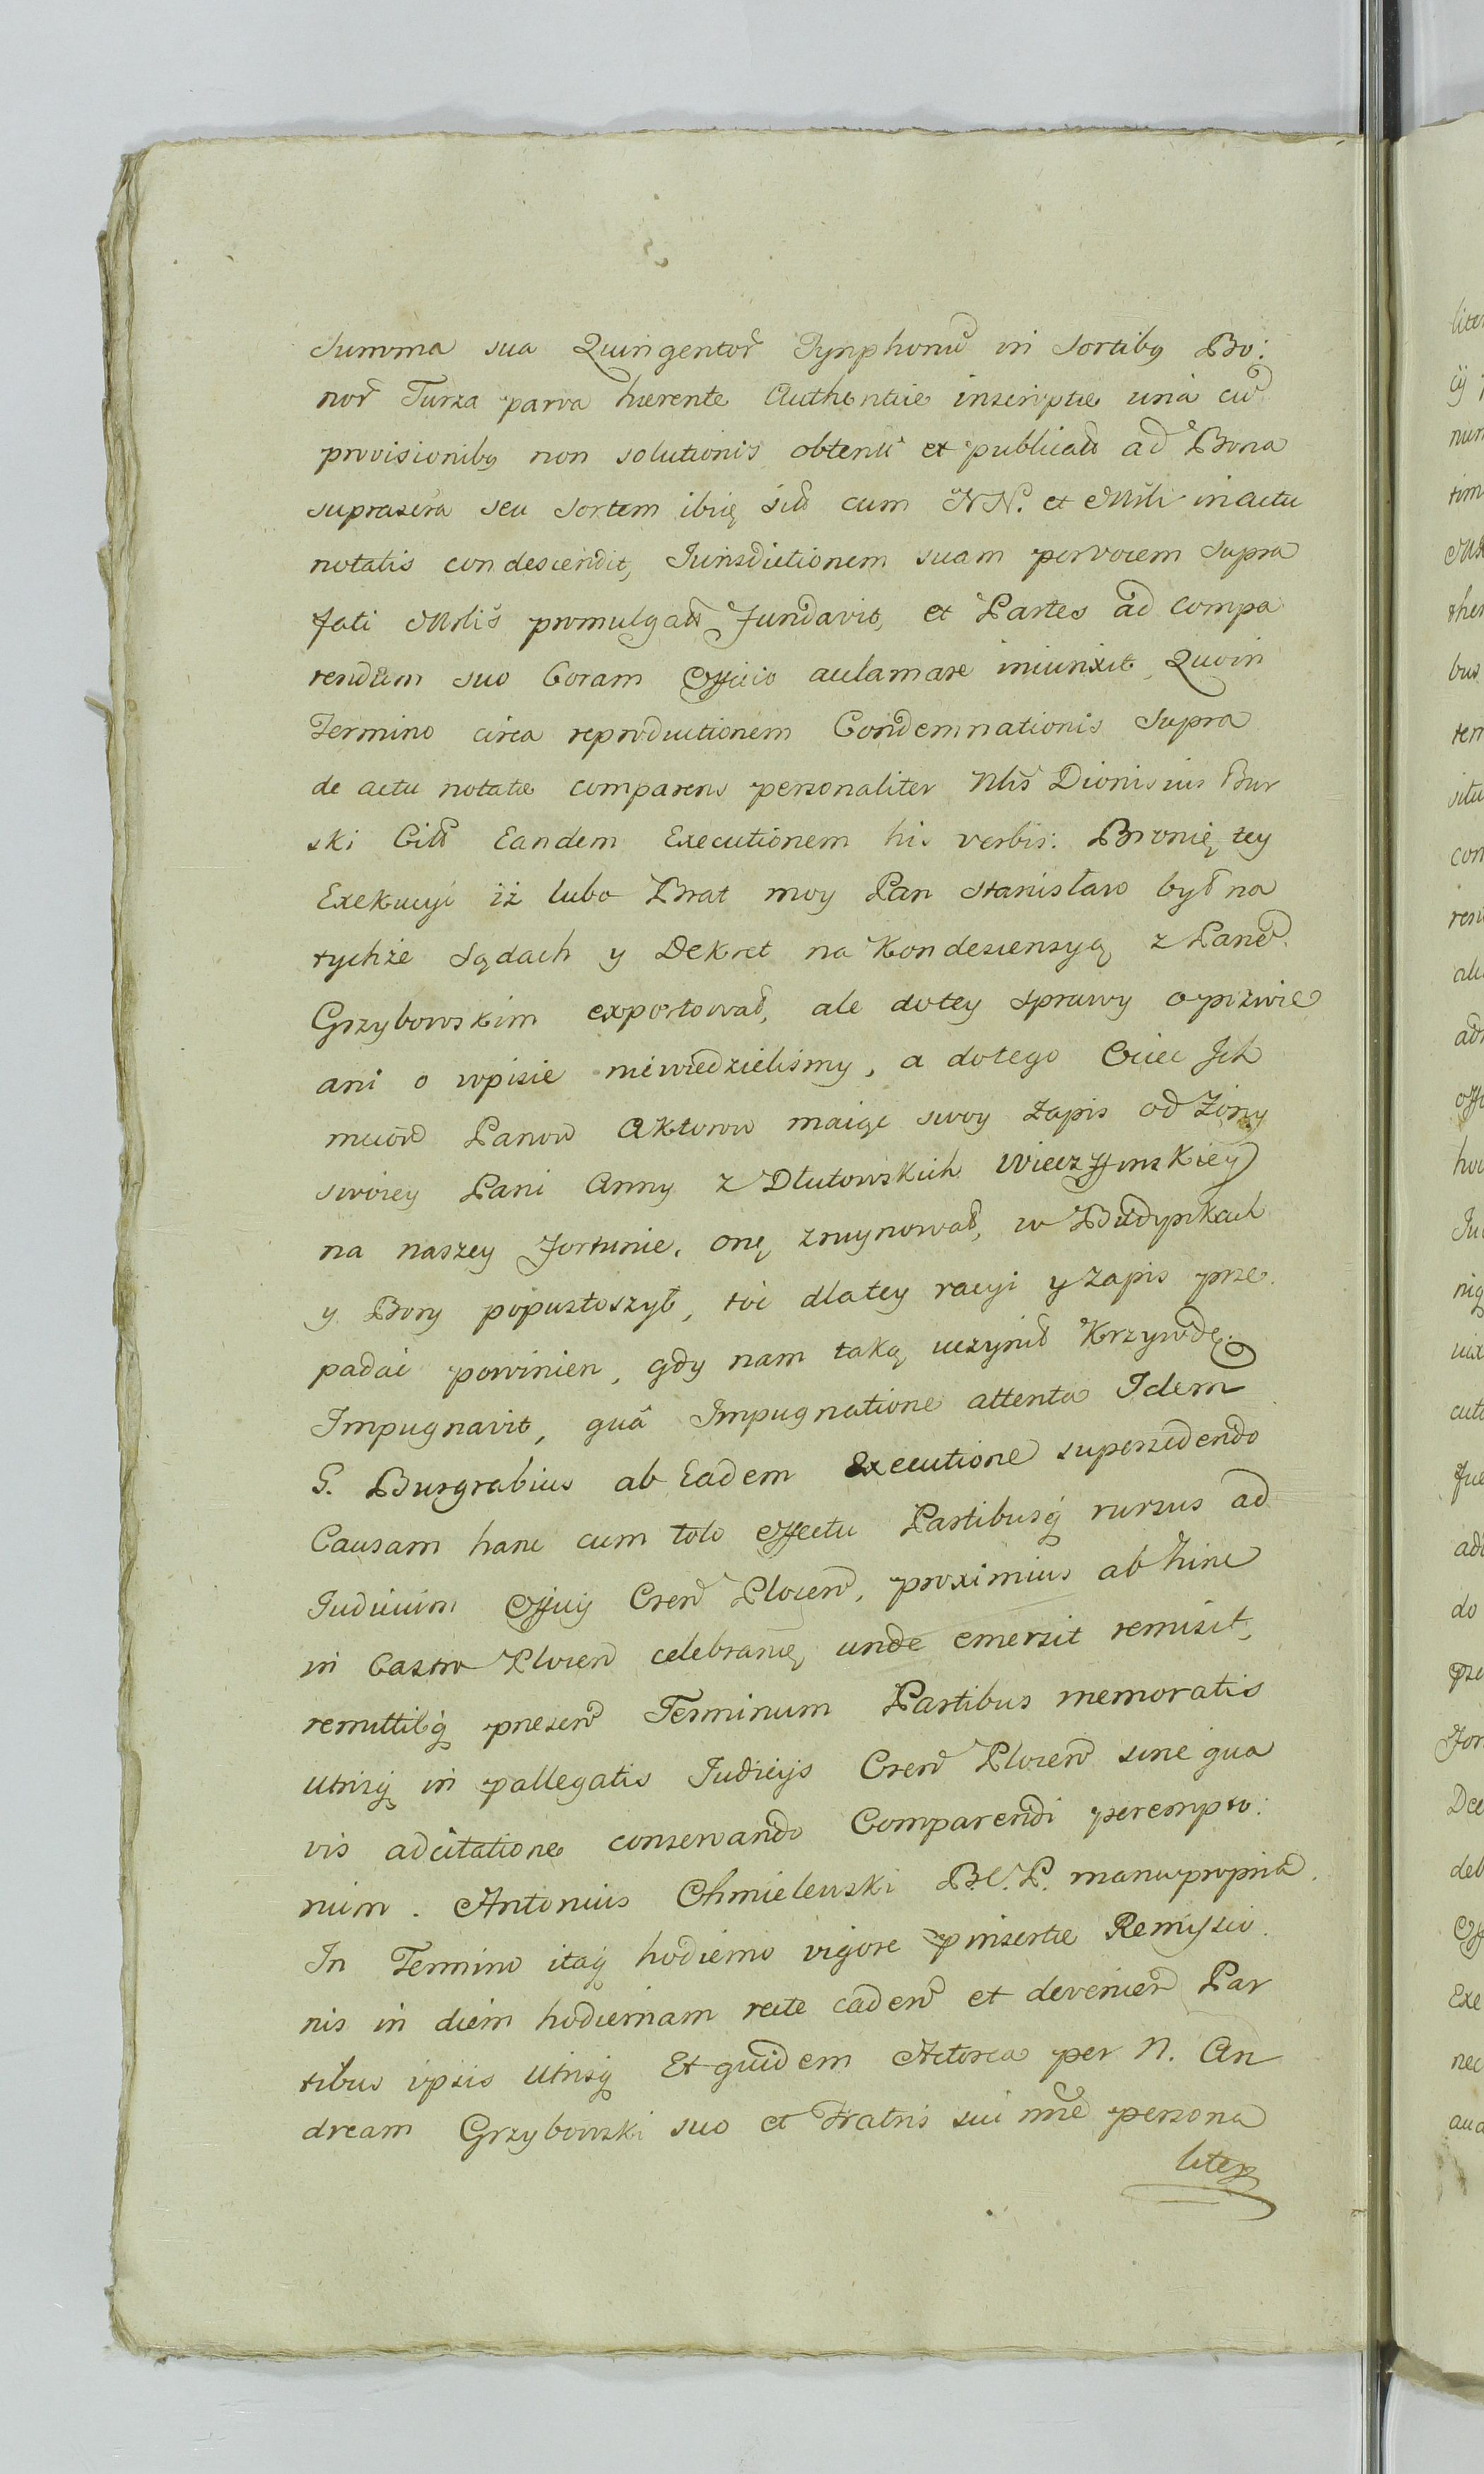 Summa sua Quingentor̃ Tynphonũ in Sortibq Bo:
nor̃ Turza parva hærente Authentice inscriptæ unà cũ
provisionibq non solutionis obtenti et publicati ad Bona
suprascra seu Sortem ibiq sit̃ cum NN. et Mnli in actu
notatis condescendit, Jurisdictionem suam per vocem Supra
fati Mnlis promulgatã Fundavit, et Partes ad Compa
rendum suo Coram Officio aclamare iniunxit, Quoin
Termino circa reproductionem Condemnationis Supra
de actu notatæ comparens personaliter Nlis Dionisius Bur
ski Cit̃t Eandem Executionem his verbis: Bronię tey
Exekucyi iż lubo Brat moy Pan Stanisław był na
tychże Sądach y Dekret na Kondescensyą z Panẽ
Grzybowskim exportował, ale dotey Sprawy o pozwie
ani o wpisie niewiedzieliśmy, a dotego Ociec Jch
mciów Panow Aktorow maiąc swoy Zapis od Żony
swoiey Pani Anny z Dłutowskich Wieczffinskiey
na naszey Fortunie, onę zruynował, w Budynkach
y Bory popustoszył, toć dlatey racyi y Zapis prze
padać powinien, gdy nam taką uczynił Krzywdę.
Impugnavit, quâ Impugnatione attenta Idem
G. Burgrabius ab Eadem Executione supersedendo
Causam hanc cum toto effectu Partibusq rursus ad
Judicium Officij Cren̄ Plocen̄, proximius ab hinc
in Castro Plocen̄ celebranq unde emersit remisit,
remittitq præsen̄ Terminum Partibus memoratis
utrisq in pallegatis Judicijs Cren̄ Plocen̄ sine qua
vis adcitatione conservando Comparendi perempto:
rium. Antonius Chmielewski B.C.P. manu propria.
In Termino itaq hodierno vigore pinsertæ Remissio
nis in diem hodiernam recte caden̄ et devenien̄ Par
tibus ipsis utrisq Et quidem Actorea per N. An
dream Grzybowski suo et Fratris sui nñe persona
liter